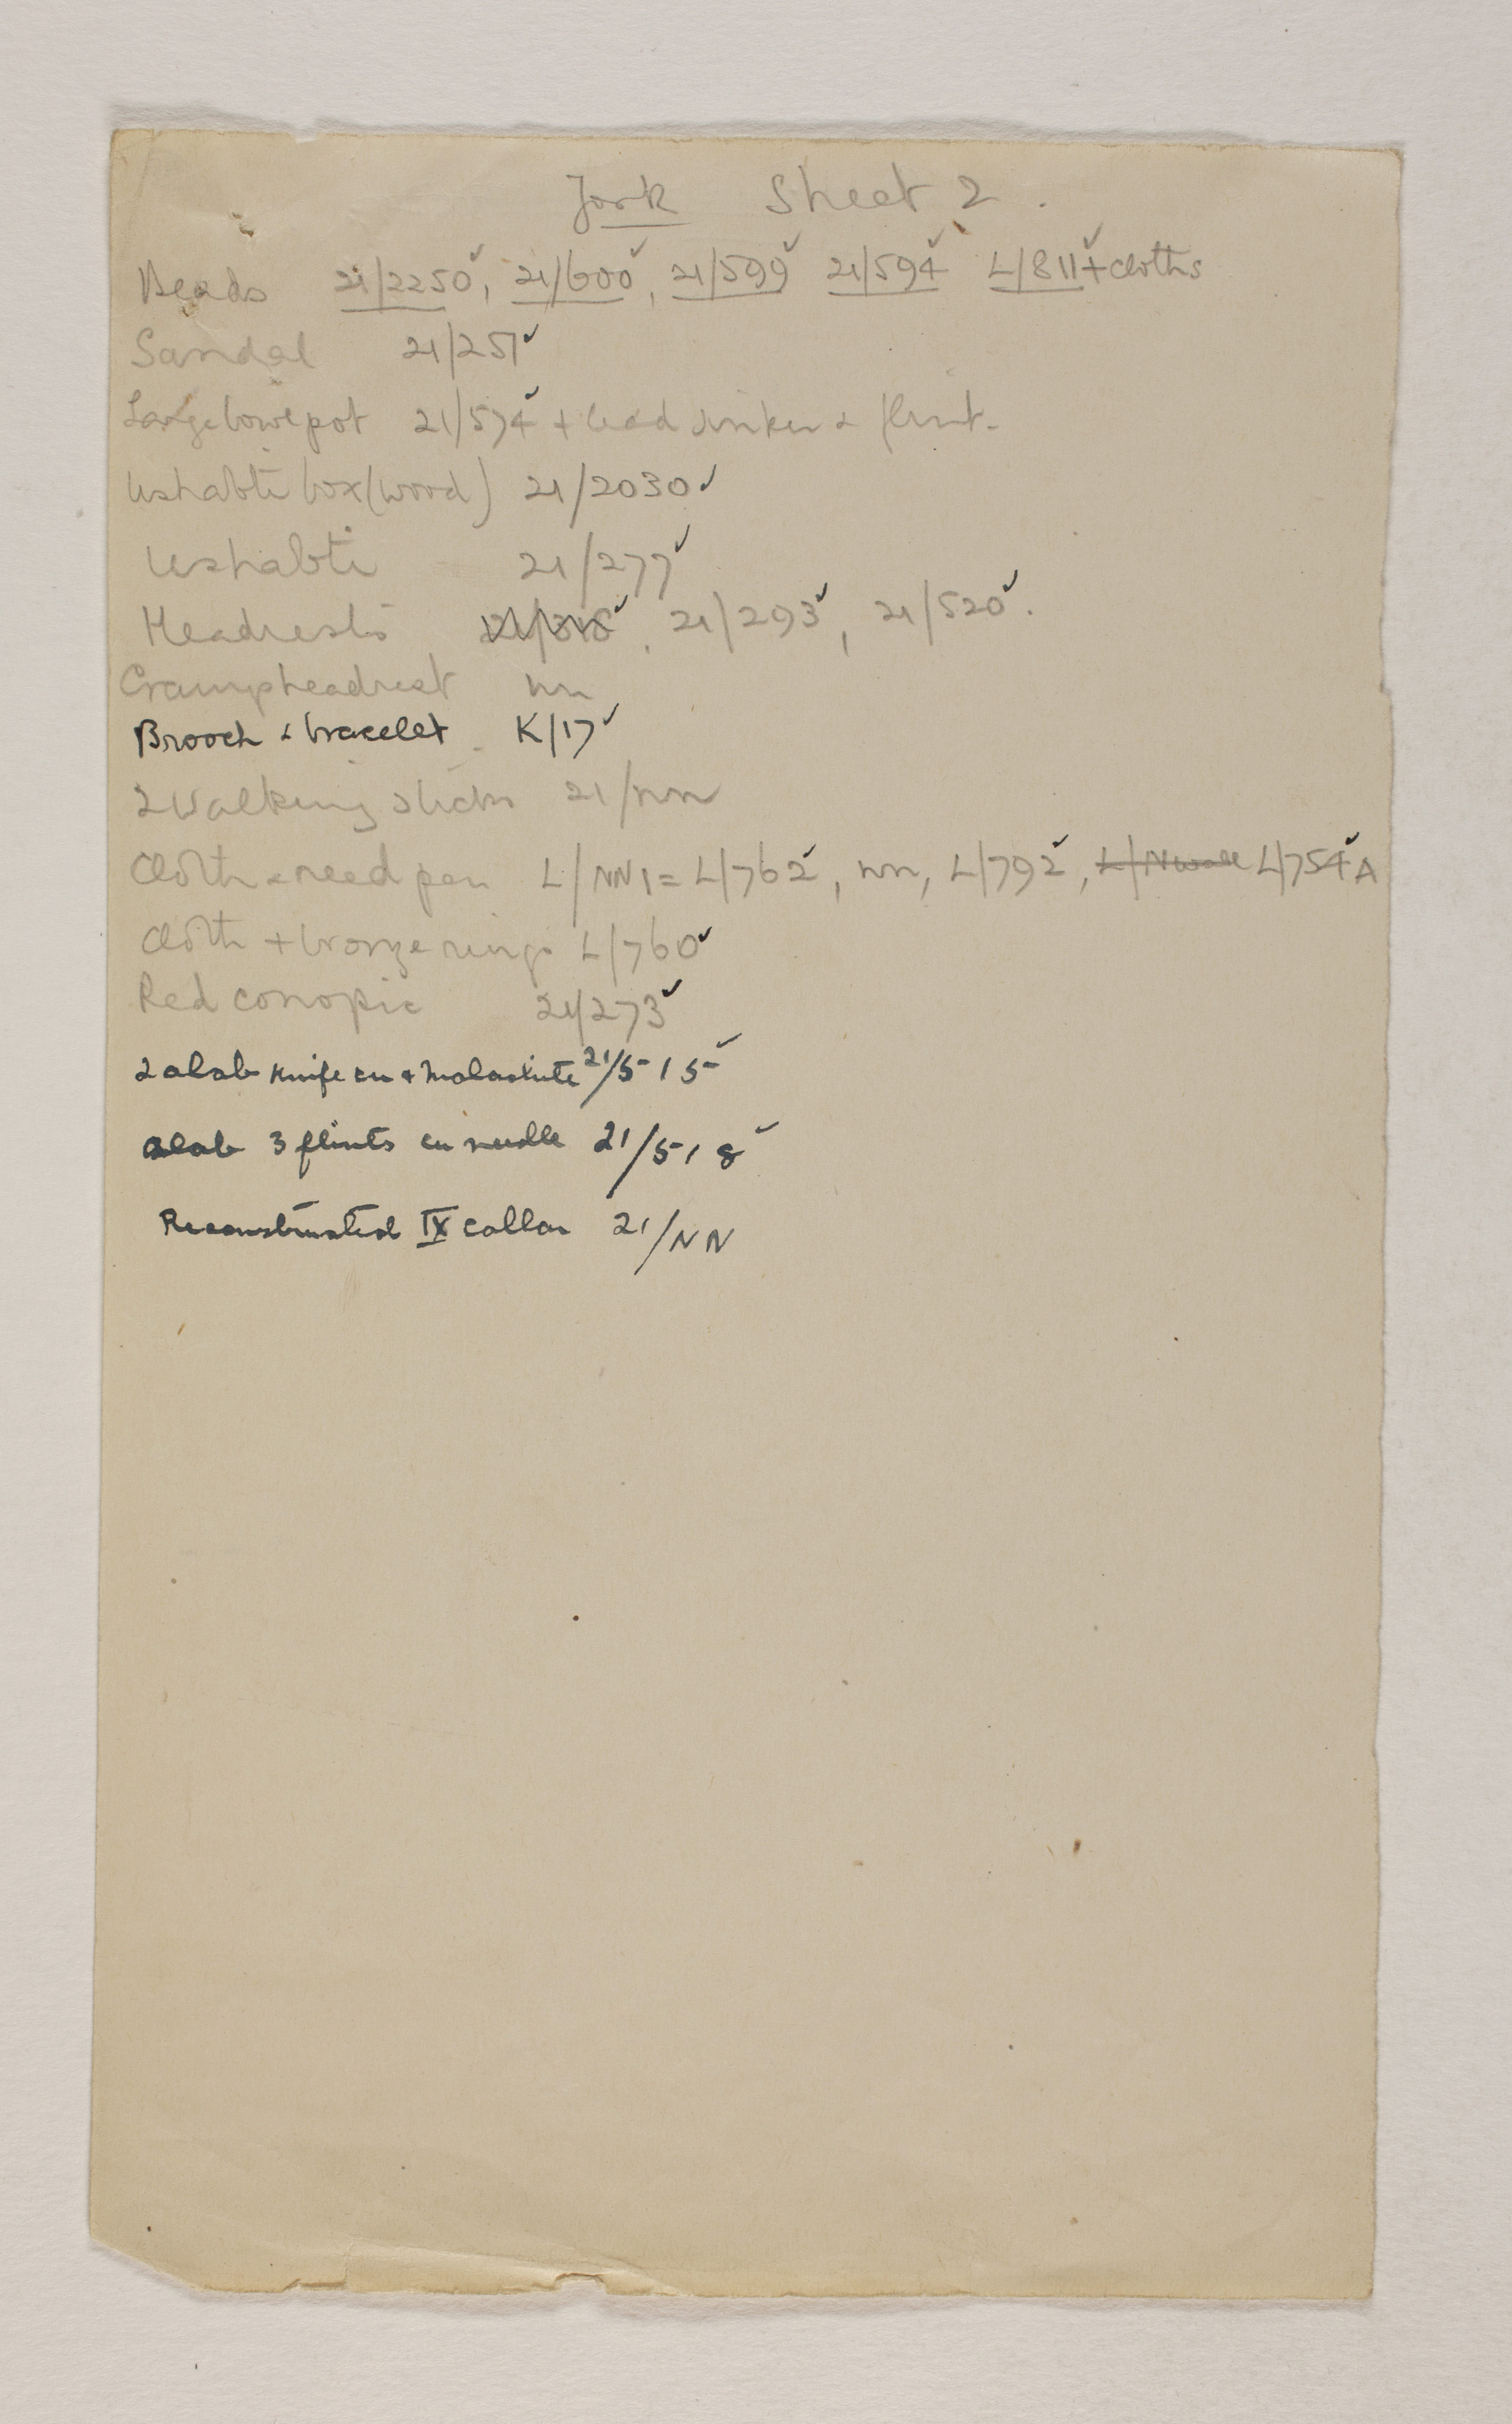 York Sheet 2.
Beads 21/2250✓, 21/600✓, 21/599✓ 21/594✓ L/811✓ + cloths
Sandal 21/251✓
Large bowl pot 21/574✓ + lead sinker & flint.
Ushabti box (wood) 21/2030✓
Ushabti 21/277✓
Headrests ✓, 21/293✓, 21/520✓.
headrest nn
Brooch & bracelet K/17✓
2 Walking sticks 21/nn
Cloth & reed pen L/NN1 = L/762✓, nn, L/792✓, L/754✓A
Cloth + bronze rings L/760✓
Red conopic 21/273✓
2 alab knife cu & malachite 21/515✓
alab 3 flints cu needle 21/518✓
Reconstructed IX collar 21/NN